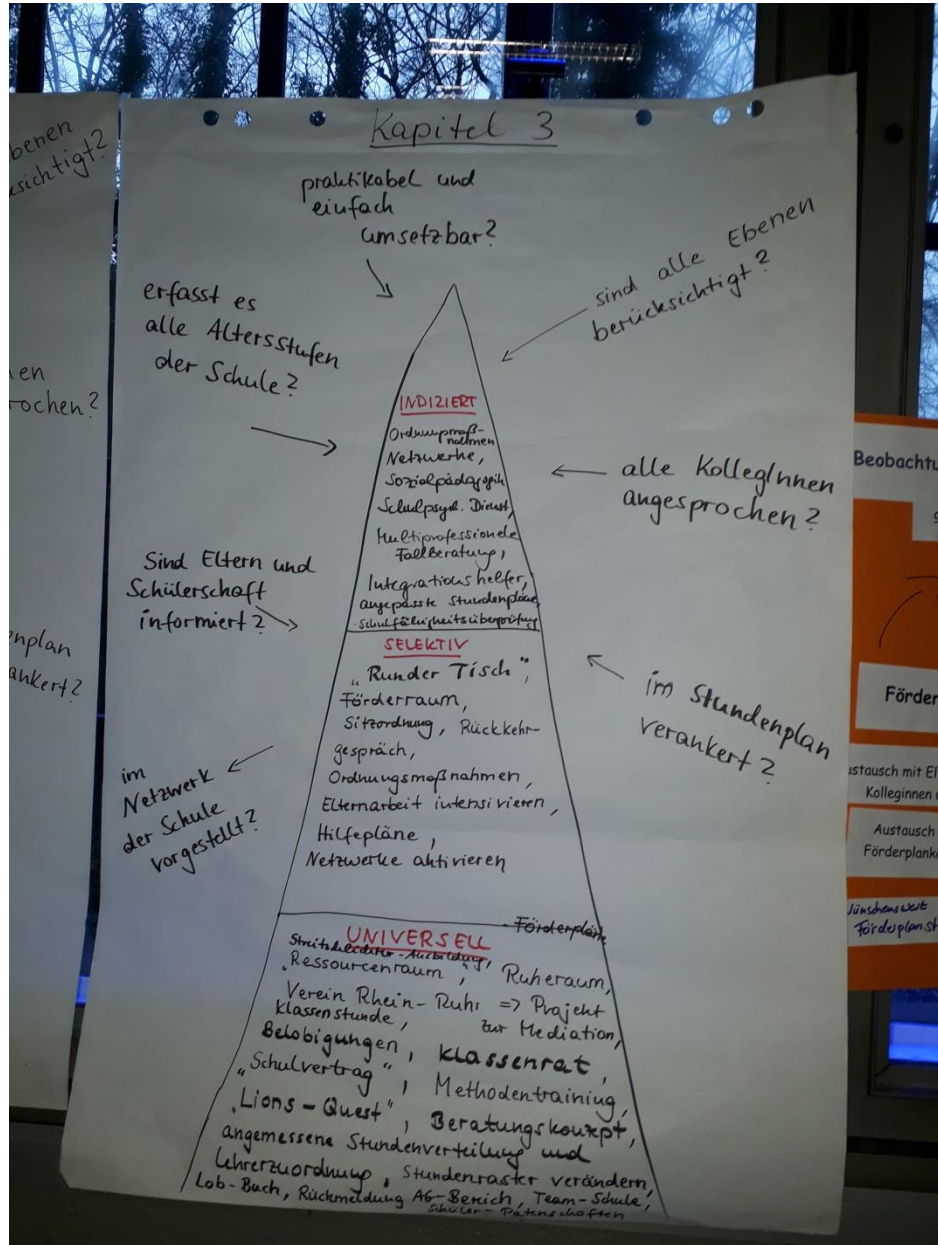 Kapitel 3
praktikabel und
einfach
umsetzbar?
sind alle Ebenen
berücksichtigt?
erfasst es
alle Altersstufen
der Schule?
alle KollegInnen
angesprochen?
Sind Eltern und
Schülerschaft
informiert?
im Stundenplan
verankert?
im
Netzwerk
der Schule
vorgestellt?
INDIZIERT
Ordnungsmaß-
nahmen
Netzwerke,
Sozialpädagogik
Schulpsych. Dienst,
Multiprofessionelle
Fallberatung,
Integrationshelfer,
angepasste Stundenpläne
Schulfähigkeitsüberprüfung
SELEKTIV
"Runder Tisch",
Förderraum,
Sitzordnung, Rückkehr-
gespräch,
Ordnungsmaßnahmen,
Elternarbeit intensivieren,
Hilfepläne,
Netzwerke aktivieren
- Förderpläne
UNIVERSELL
Streitschlichter-Ausbildung,
"Ressourcenraum", Ruheraum,
Verein Rhein-Ruhr => Projekt
Klassenstunde, zur Mediation,
Belobigungen, Klassenrat,
"Schulvertrag", Methodentraining,
"Lions-Quest", Beratungskonzept,
angemessene Stundenverteilung und
Lehrerzuordnung, Stundenraster verändern,
Lob-Buch, Rückmeldung AG-Bereich, Team-Schule,
Schüler-Patenschaften
benen
ksichtigt?
en
rochen?
nplan
ankert?
Beobachtu
Förder
stausch mit El
Kolleginnen
Austausch
Förderplank
Wünschenswert
Förderplanst